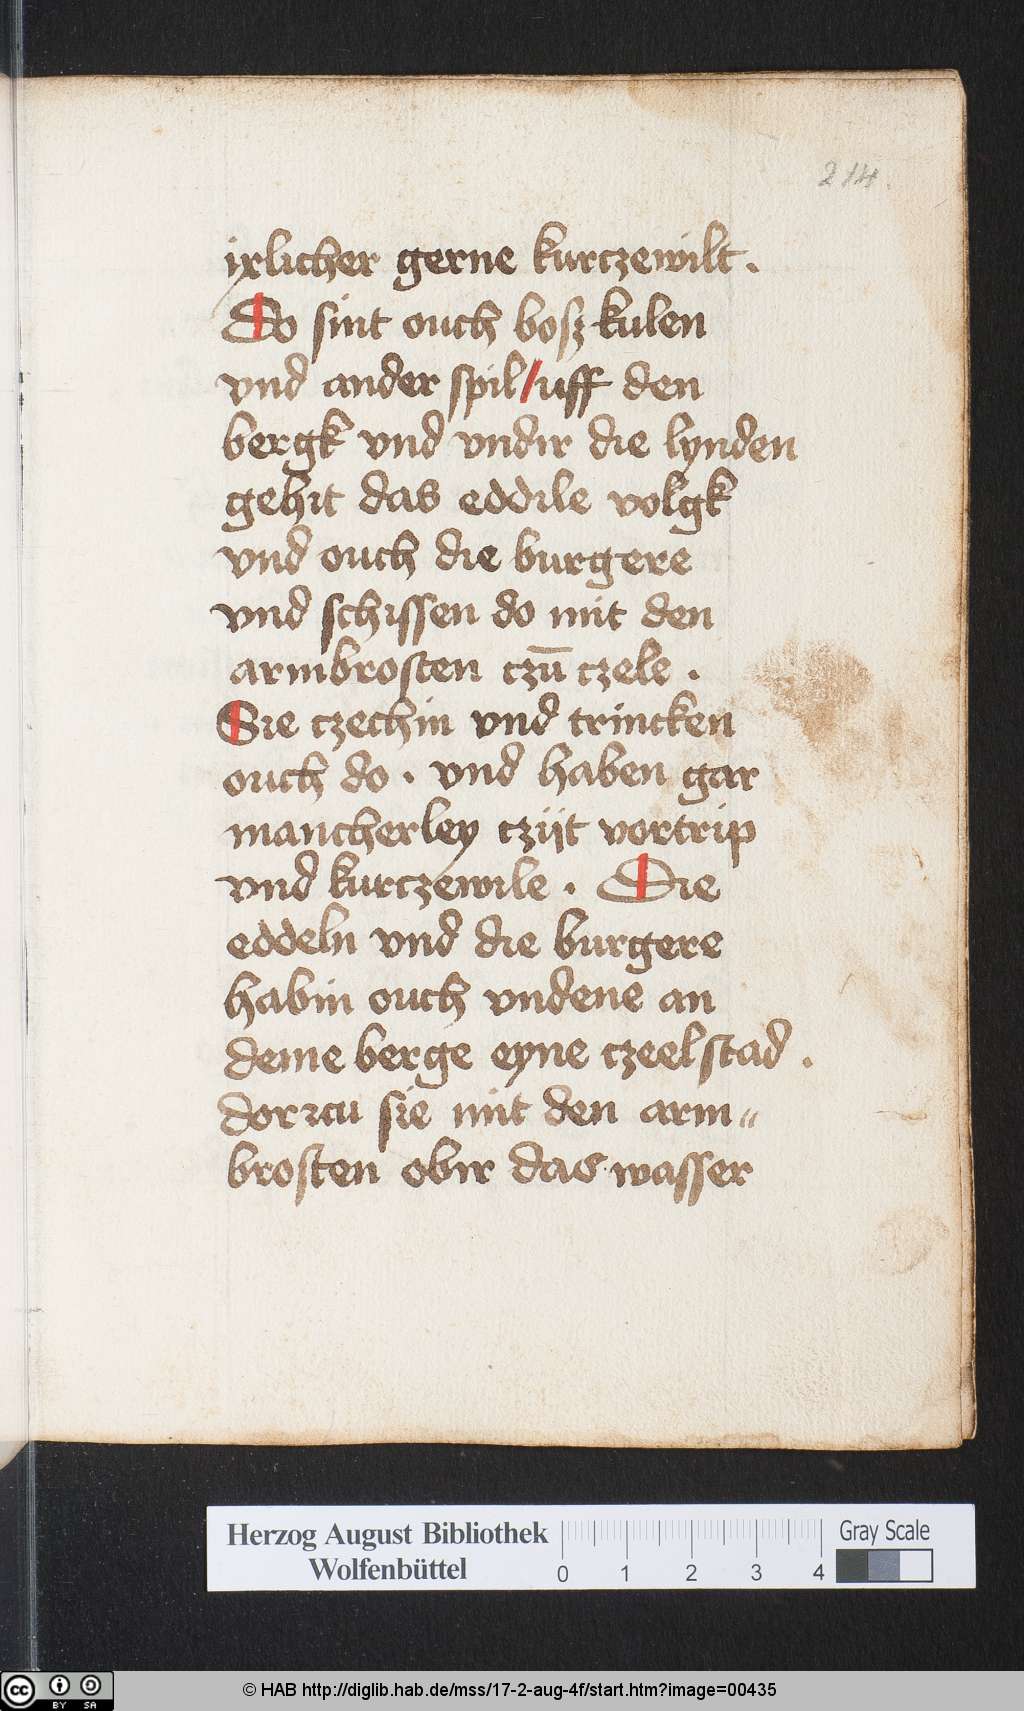 214
ixlicher gerne kurczewilt.
Do sint ouch bosz kulen
vnd ander spil/uff den
bergk vnd vndir die lynden
gehit das eddile volgk
vnd ouch die burgere
vnd schissen do mit den
armbrosten czū czele.
Sie czechin vnd trincken
ouch do. vnd haben gar
mancherley czijt vortrip
vnd kurczewile. Die
eddeln vnd die burgere
habin ouch vndene an
deme berge eyne czeelstad.
dorzcu sie mit den arm=
brosten obir das wasser
Herzog August Bibliothek
Wolfenbüttel
0 1 2 3 4
Gray Scale
cc BY SA
© HAB http://diglib.hab.de/mss/17-2-aug-4f/start.htm?image=00435